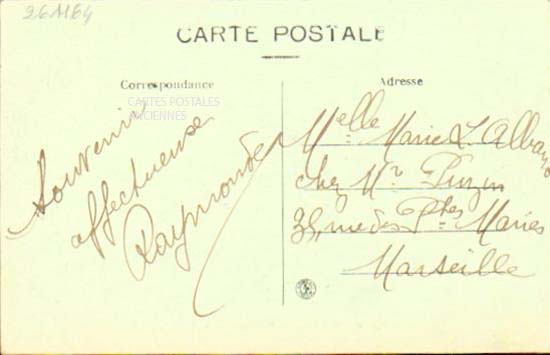 261164
CARTE POSTALE
Correspondance
CARTES POSTALES
ANCIENNES
Souvenir
affectueuse
Raymonde
Adresse
Melle Marie L.
chez Mr
rue des Ptes Maries
Marseille